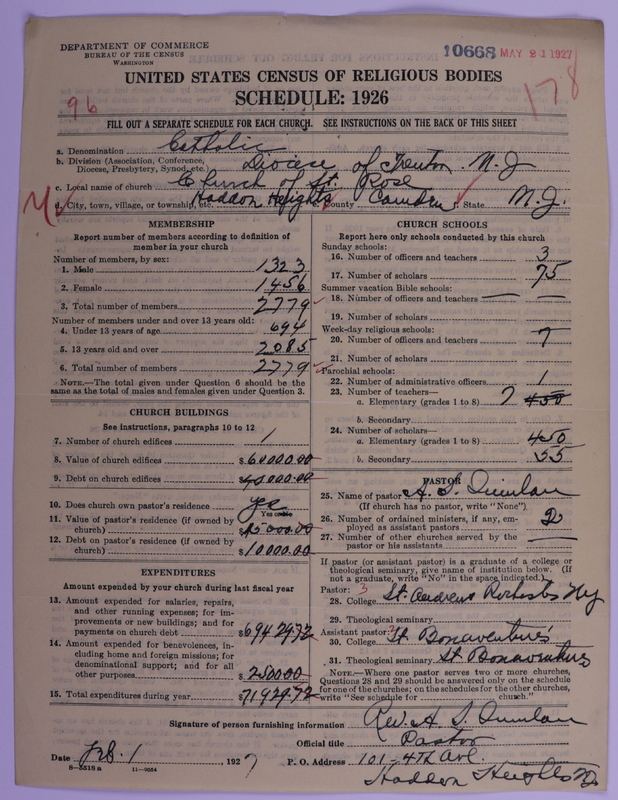 DEPARTMENT OF COMMERCE
BUREAU OF THE CENSUS
WASHINGTON
10668 MAY 21 1927
178
UNITED STATES CENSUS OF RELIGIOUS BODIES
SCHEDULE: 1926
96
FILL OUT A SEPARATE SCHEDULE FOR EACH CHURCH. SEE INSTRUCTIONS ON THE BACK OF THIS SHEET
a. Denomination Catholic
b. Division (Association, Conference, Diocese, Presbytery, Synod, etc.) Diocese of Trenton. N. J
c. Local name of church Church of St. Rose
d. City, town, village, or township, etc. Haddon Heights e. County Camden f. State N. J.
MEMBERSHIP
Report number of members according to definition of
member in your church
Number of members, by sex:
1. Male 1323
2. Female 1456
3. Total number of members 2779
Number of members under and over 13 years old:
4. Under 13 years of age 694
5. 13 years old and over 2085
6. Total number of members 2779
NOTE.—The total given under Question 6 should be the
same as the total of males and females given under Question 3.
CHURCH BUILDINGS
See instructions, paragraphs 10 to 12
7. Number of church edifices 1
8. Value of church edifices $60000.00
9. Debt on church edifices $40000.00
10. Does church own pastor's residence yes
Yes or No
11. Value of pastor's residence (if owned by
church) $15000.00
12. Debt on pastor's residence (if owned by
church) $10000.00
EXPENDITURES
Amount expended by your church during last fiscal year
13. Amount expended for salaries, repairs,
and other running expenses; for im-
provements or new buildings; and for
payments on church debt $69429.72
14. Amount expended for benevolences, in-
cluding home and foreign missions; for
denominational support; and for all
other purposes $2500.00
15. Total expenditures during year 71929.72
CHURCH SCHOOLS
Report here only schools conducted by this church
Sunday schools:
16. Number of officers and teachers 3
17. Number of scholars 75
Summer vacation Bible schools:
18. Number of officers and teachers
19. Number of scholars
Week-day religious schools:
20. Number of officers and teachers 7
21. Number of scholars
Parochial schools:
22. Number of administrative officers 1
23. Number of teachers—
a. Elementary (grades 1 to 8) 7 450
b. Secondary
24. Number of scholars—
a. Elementary (grades 1 to 8) 450
b. Secondary 55
PASTOR
25. Name of pastor A. S. Quinlan
(If church has no pastor, write "None")
26. Number of ordained ministers, if any, em-
ployed as assistant pastors 2
27. Number of other churches served by the
pastor or his assistants
If pastor (or assistant pastor) is a graduate of a college or
theological seminary, give name of institution below. (If
not a graduate, write "No" in the space indicated.)
Pastor: 3
28. College St. Andrews Rochester NY
29. Theological seminary
Assistant pastor:
30. College St Bonaventure's
31. Theological seminary St. Bonaventures
NOTE.—Where one pastor serves two or more churches,
Questions 28 and 29 should be answered only on the schedule
for one of the churches; on the schedules for the other churches,
write "See schedule for church."
Signature of person furnishing information Rev. A. S. Quinlan
Official title Pastor
Date Feb. 1 1927 P. O. Address 101-4th Ave.
8-5518a 11-9084
Haddon Heights NJ